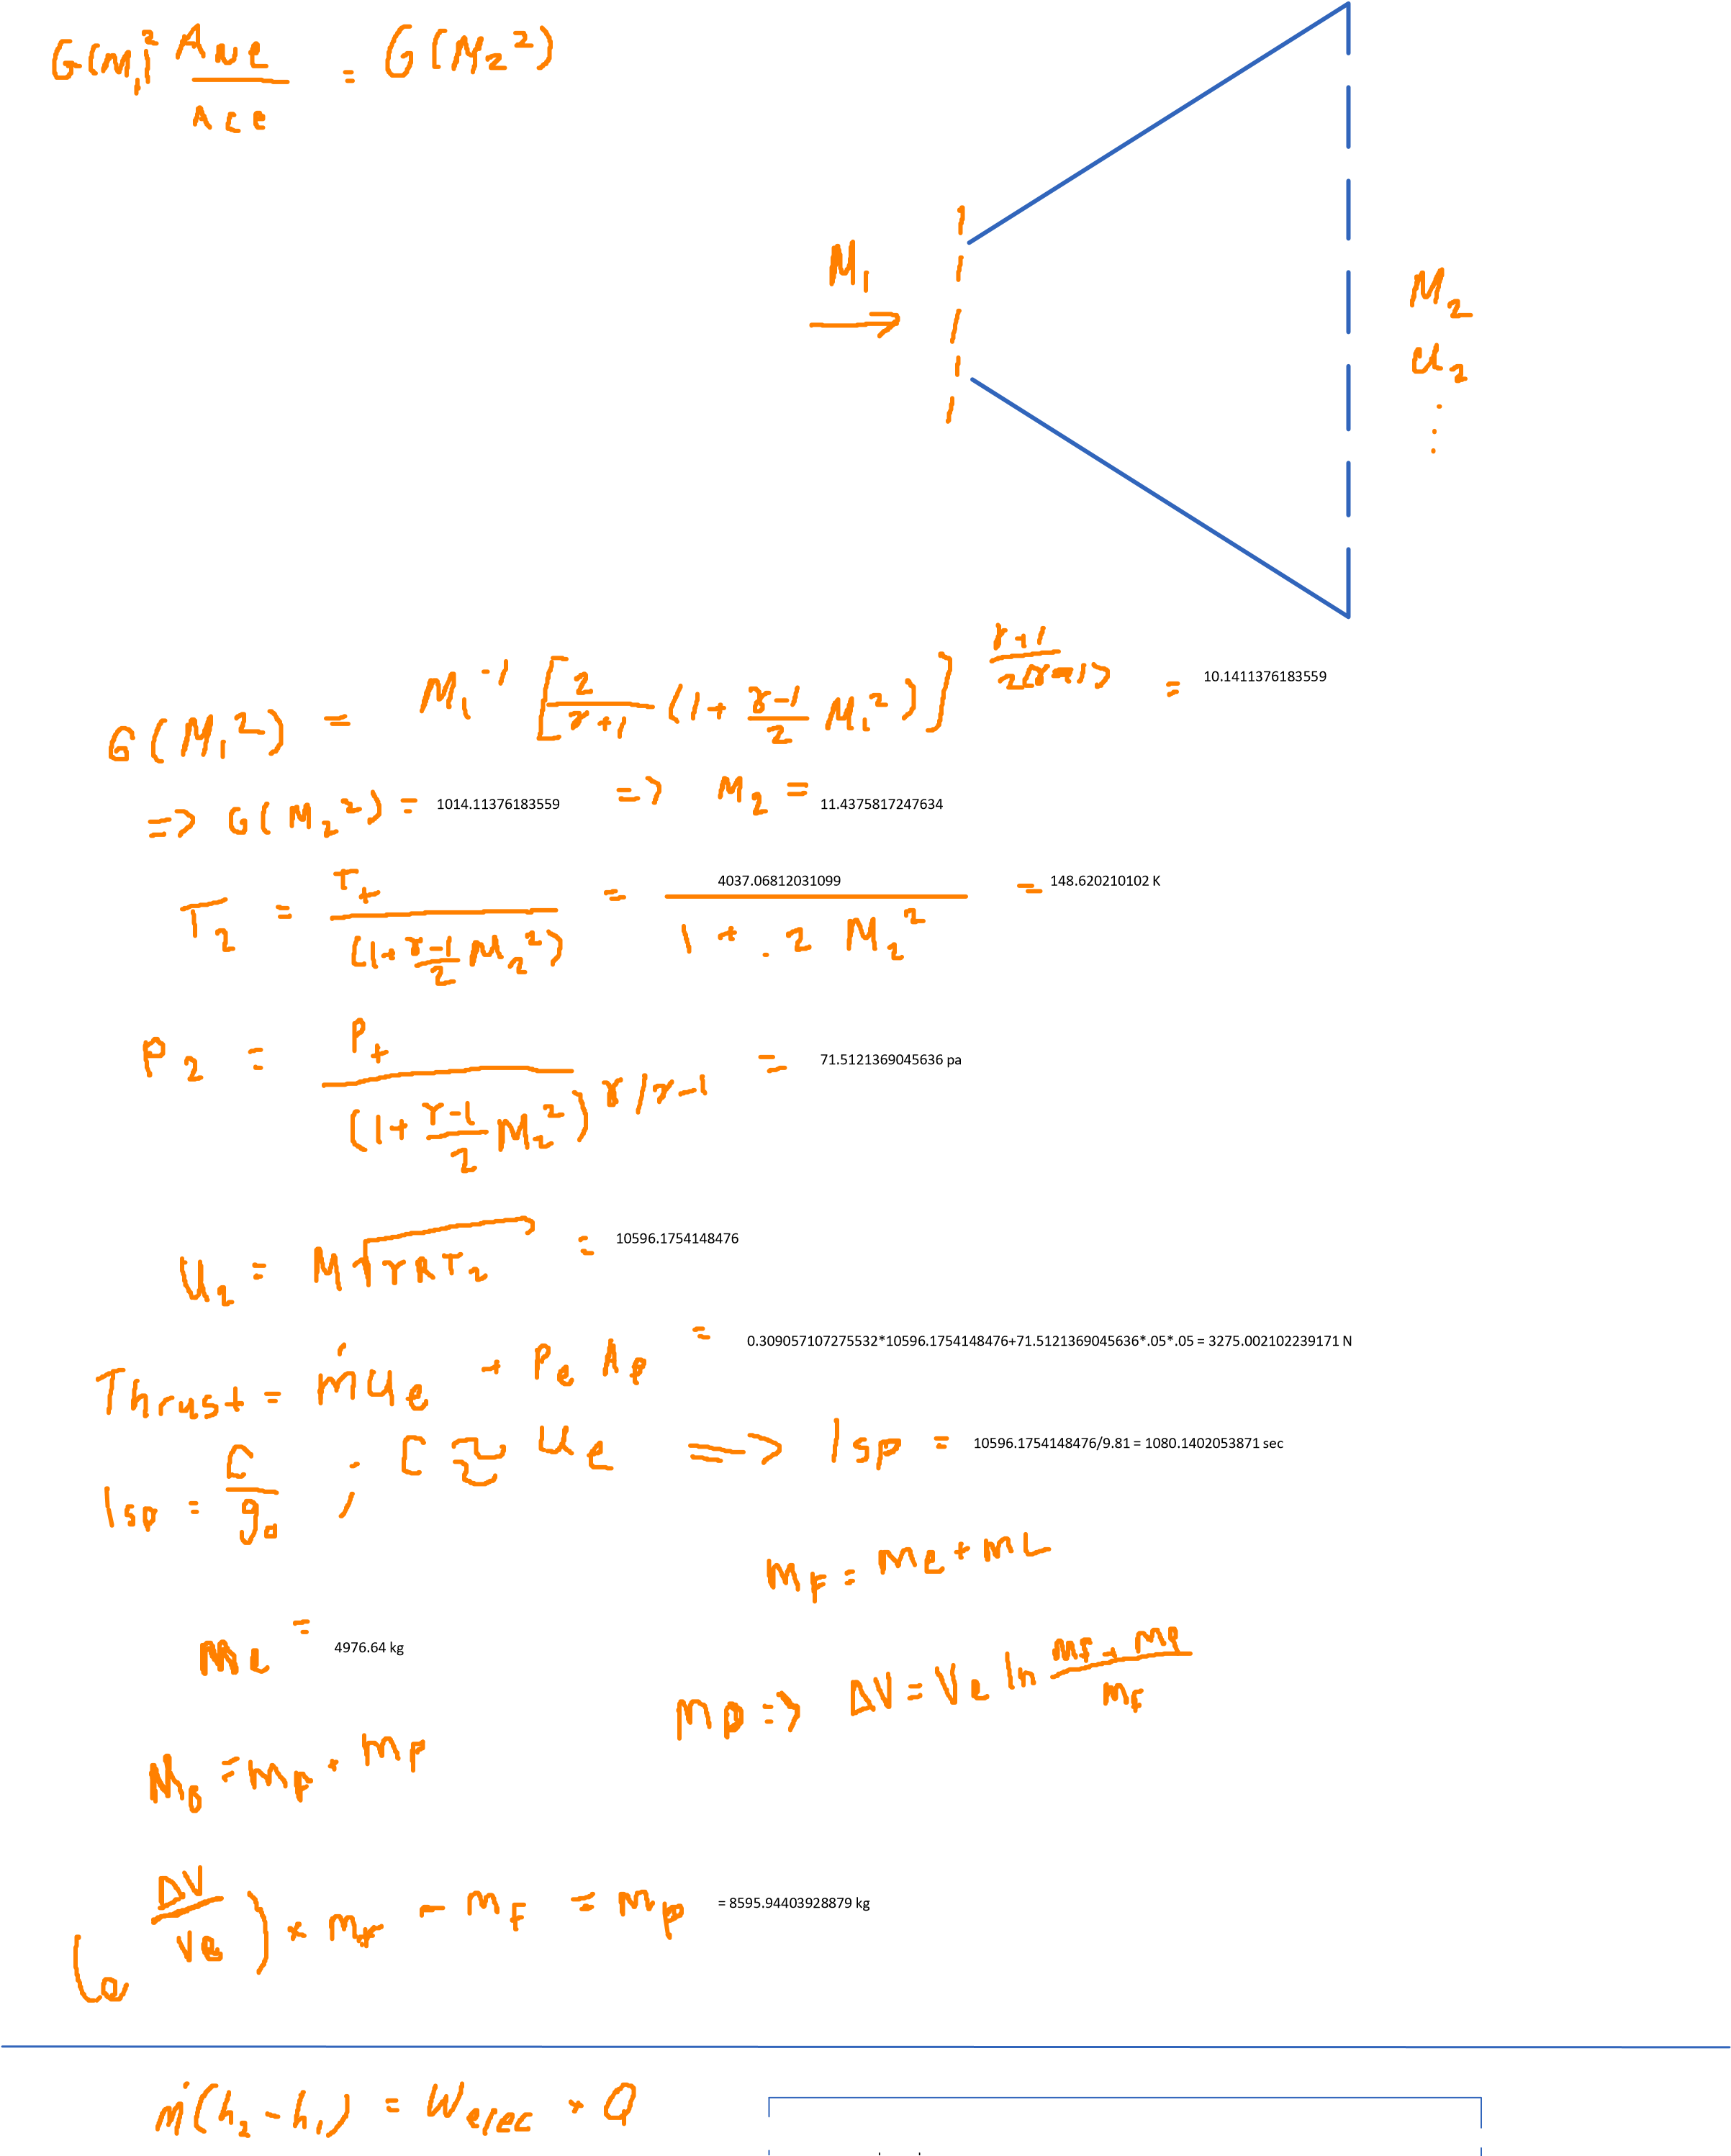 G(M₁² Ane / Ace = G(M₂²)
M₁
M₂
u₂
G(M₁²) = M₁⁻¹ [2/γ+1 (1 + γ-1/2 M₁²)]^(γ+1/2(γ-1)) = 10.1411376183559
=> G(M₂²) = 1014.11376183559 => M₂ = 11.4375817247634
T₂ = Tt / (1+γ-1/2 M₂²) = 4037.06812031099 / 1 + .2 M₂² = 148.620210102 K
P₂ = Pt / (1+γ-1/2 M₂²)^γ/γ-1 = 71.5121369045636 pa
U₂ = M√γRT₂ = 10596.1754148476
Thrust = ṁue + Pe Ae = 0.309057107275532*10596.1754148476+71.5121369045636*.05*.05 = 3275.002102239171 N
Isp = C/g₀ ; C ≈ Ue => Isp = 10596.1754148476/9.81 = 1080.1402053871 sec
mF = me + mL
mL = 4976.64 kg
mp => ΔV = Ve ln mF + mp / mF
M₀ = mF + mp
(e^ΔV/Ve) × mF - mF = mp = 8595.94403928879 kg
ṁ(h₂-h₁) = Welec + Q